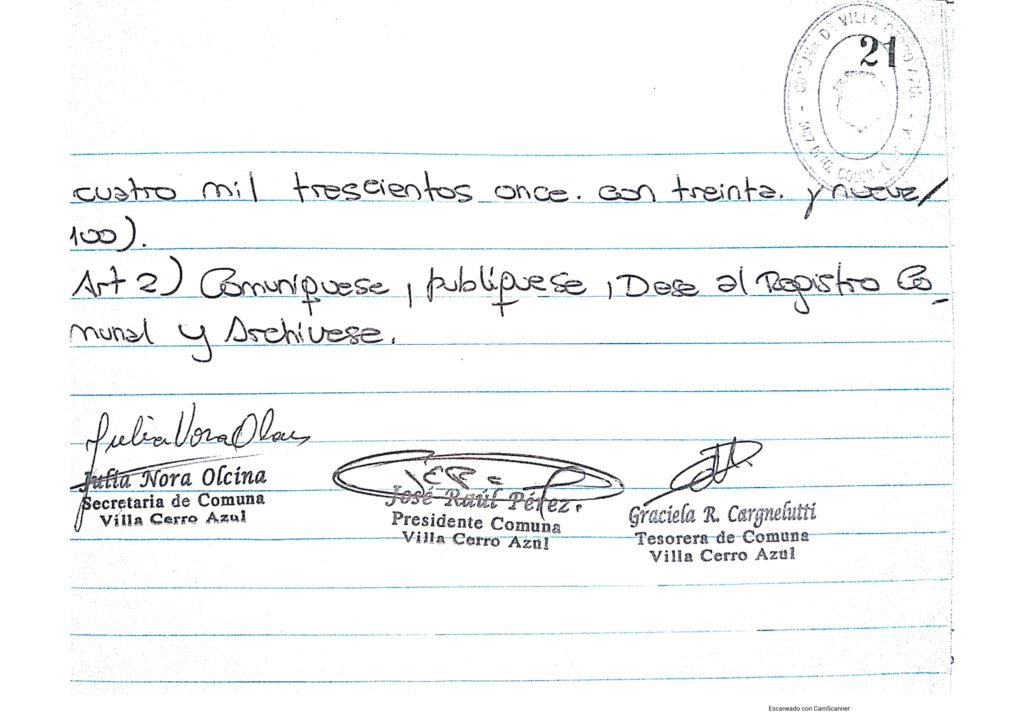 21
COMUNA DE VILLA CERRO AZUL
cuatro mil trescientos once. con treinta. y nueve/
100).
Art 2) Comuníquese, publíquese, Dese al Registro Co-
munal y Archívese.
Julia Nora Olcina
Secretaria de Comuna
Villa Cerro Azul
José Raúl Pérez.
Presidente Comuna
Villa Cerro Azul
Graciela R. Cargnelutti
Tesorera de Comuna
Villa Cerro Azul
Escaneado con CamScanner